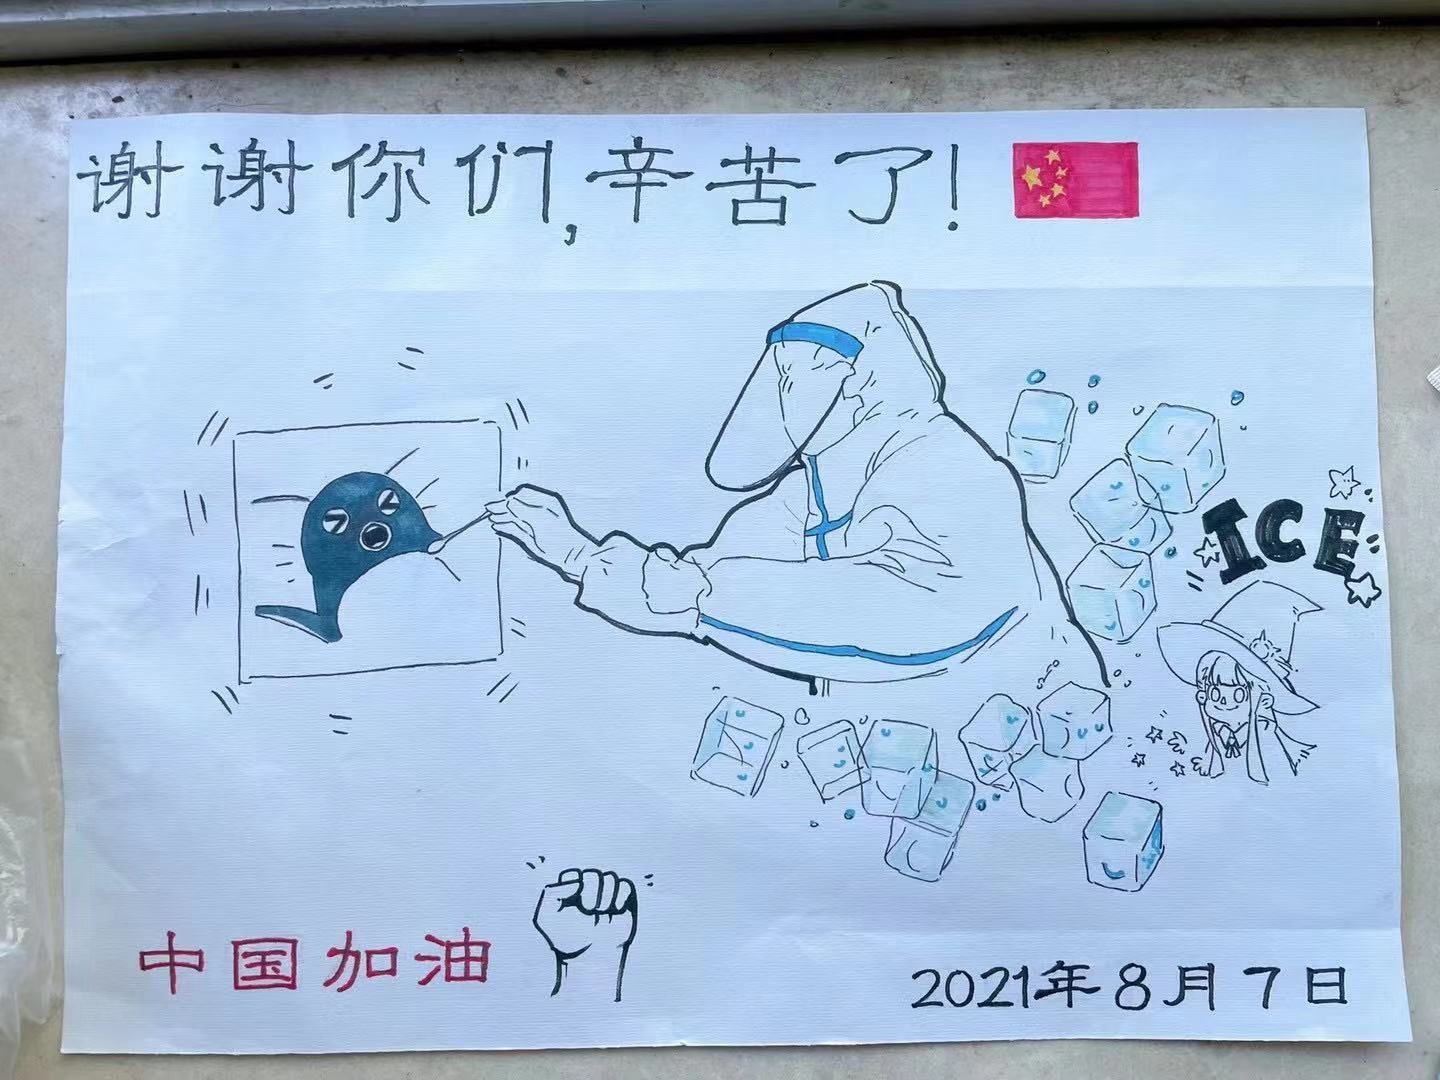 谢谢你们,辛苦了!
ICE
中国加油
2021年8月7日